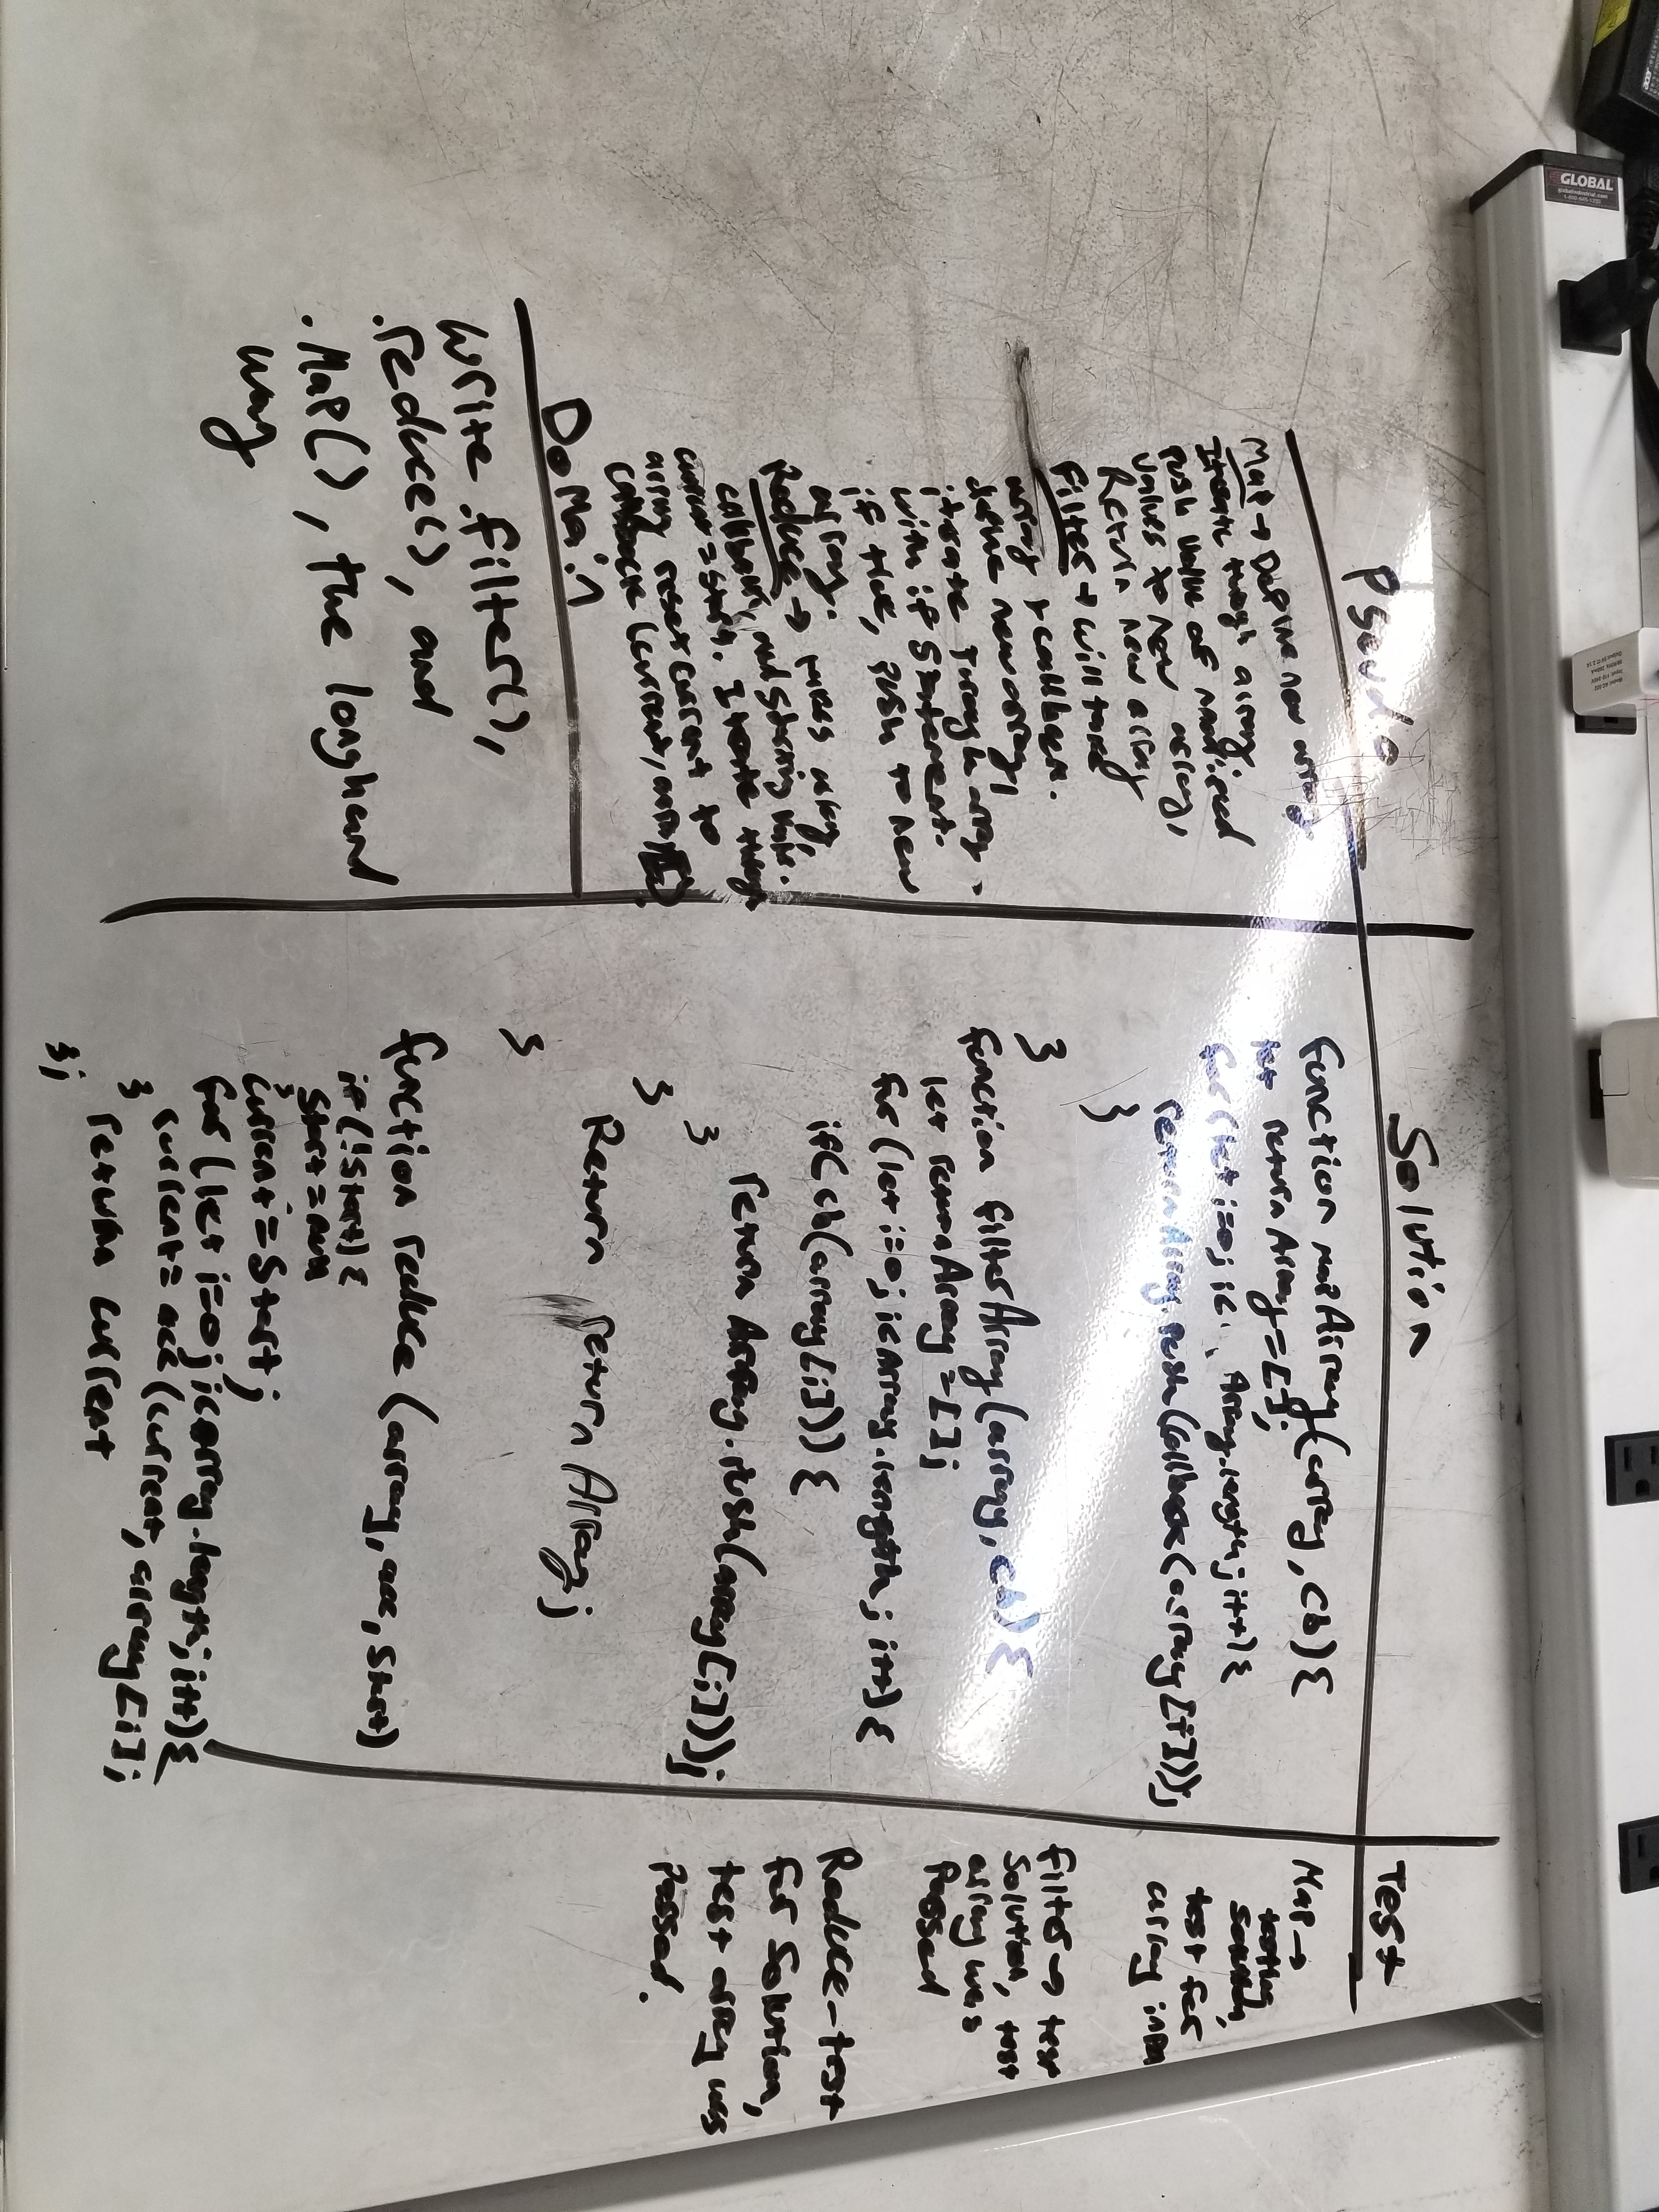 Pseudo
Map → Define new array.
Iterate through array.
Push value of modified
values to new array,
Return new array
Filter → will take
array & callback.
define new array,
iterate through array
with if statement.
if true, push to new
array.
Reduce → pass array,
callback, and starting value.
current = start. Iterate through
array reset current to
callback (current, array[i])
Domain
write .filter(),
.reduce(), and
.Map(), the longhand
way
Solution
function mapArray(array, cb) {
let returnArray = [];
for (let i=0; i< Array.length; i++) {
returnArray.push(callback(array[i]));
}
}
function filterArray(array, cb) {
let returnArray = [];
for (let i=0; i<Array.length; i++) {
if(cb(array[i])) {
return Array.push(array[i]));
}
}
Return returnArray;
}
function reduce (array, acc, start)
if (!start) {
start = num
}
current = start;
for (let i=0; i<array.length; i++) {
current = acc (current, array[i]);
}
return current
};
Test
Map →
testing
solution,
test for
array input
filter → test
Solution, test
array was
Passed
Reduce - test
for Solution,
test array was
Passed.
GLOBAL
globalindustrial.com
acer